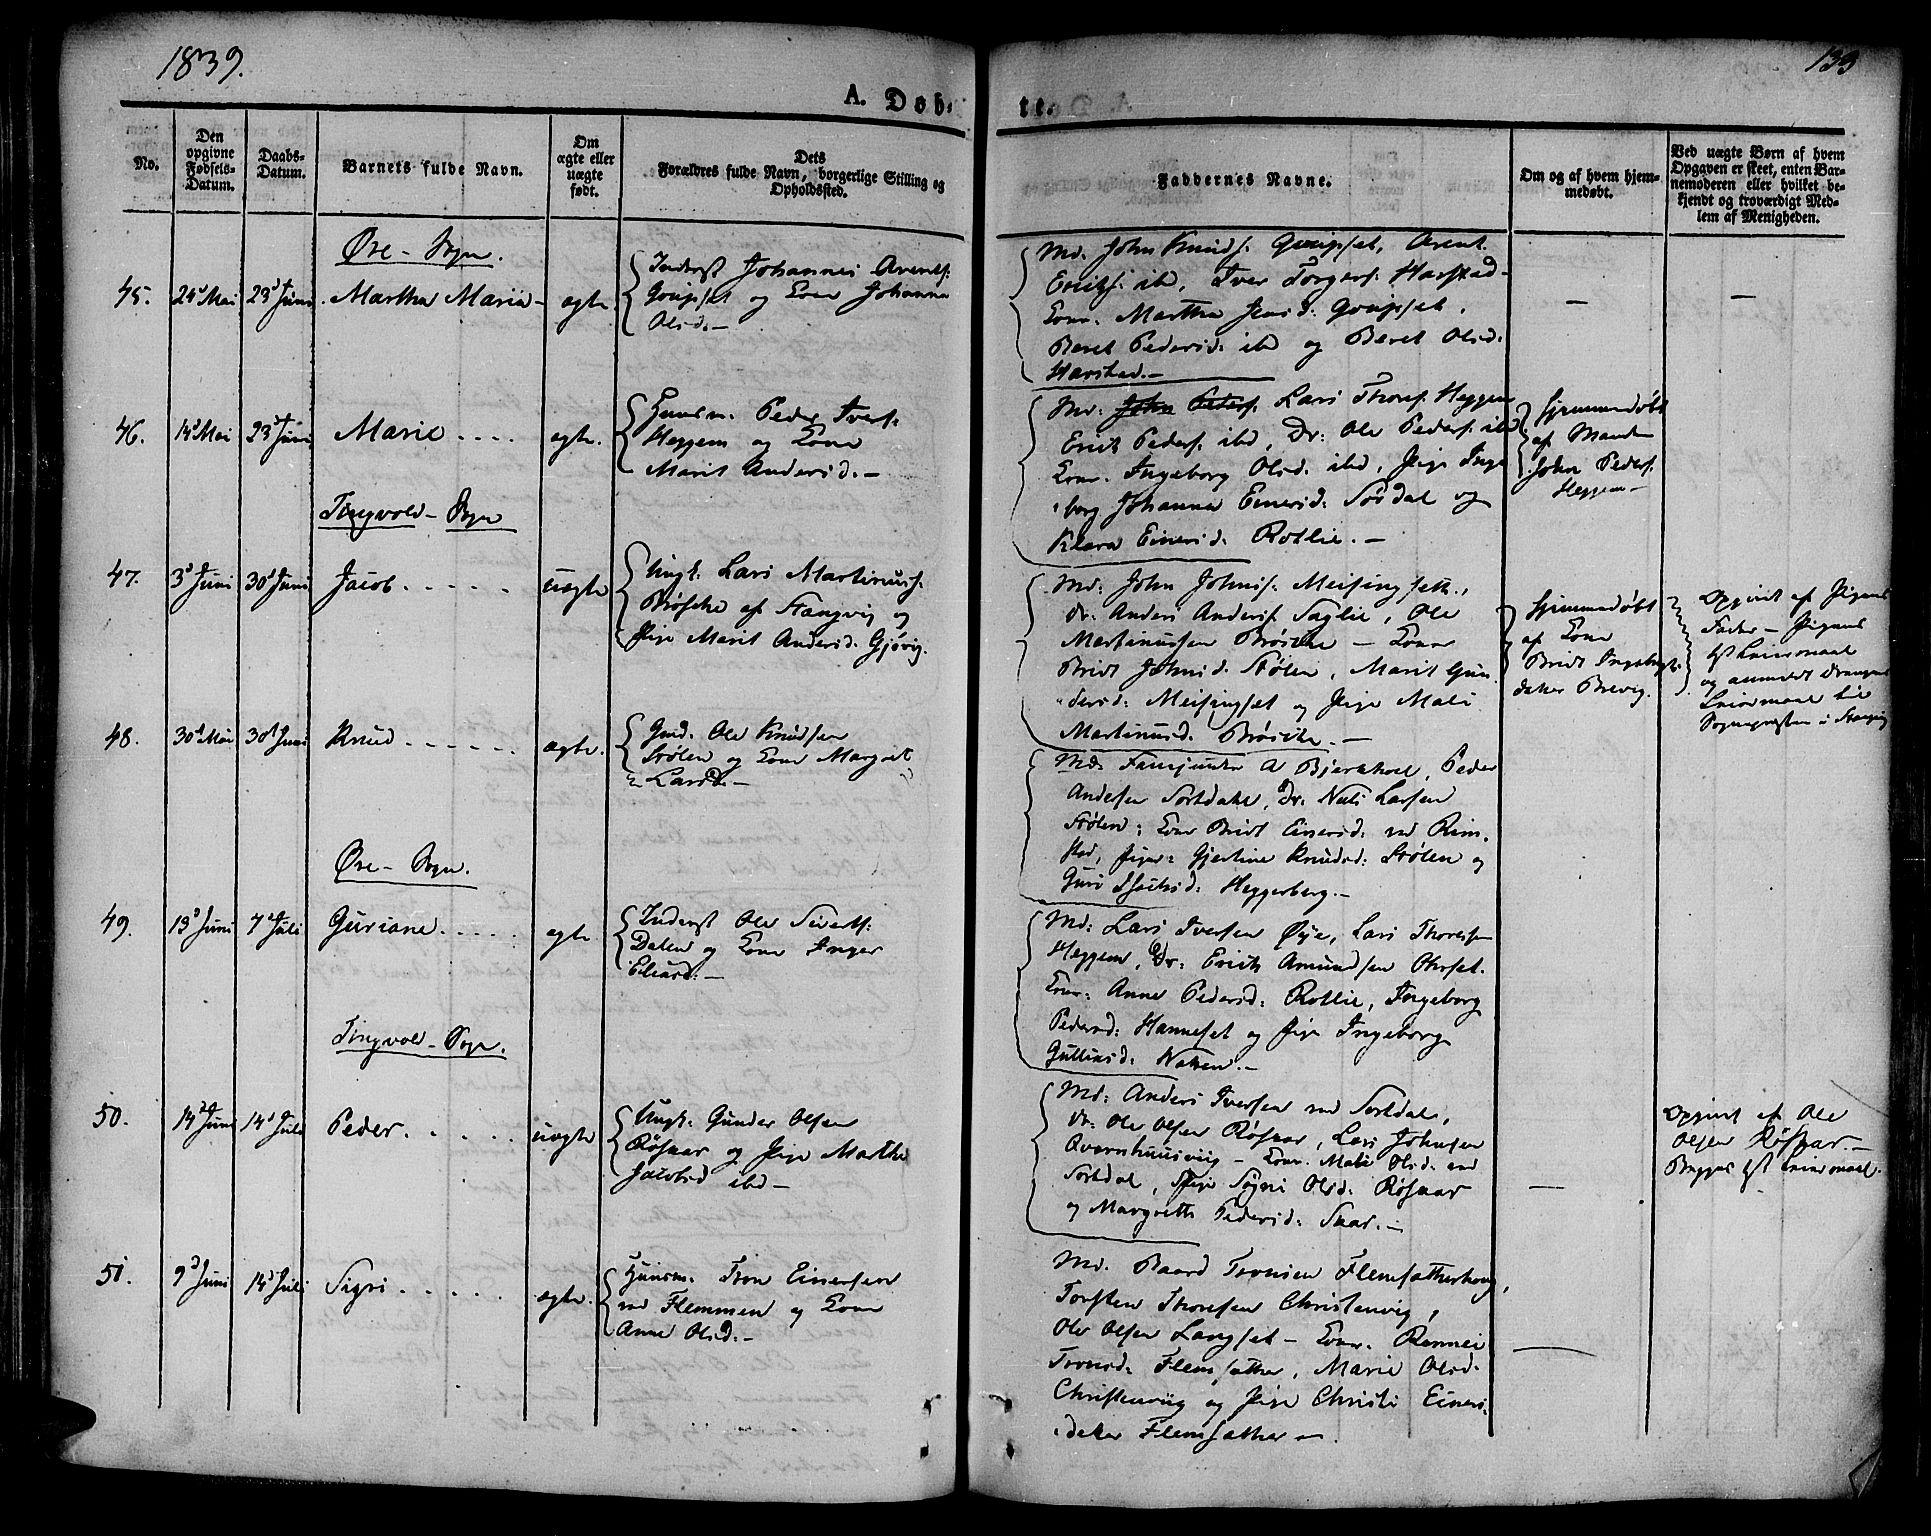 1839.
133
A. Døb-
te.
No.
Den opgivne Fødsels-Datum.
Daabs-Datum.
Barnets fulde Navn.
Om ægte eller uægte født.
Dets Forældres fulde Navn, borgerlige Stilling og Opholdssted.
Faddernes Navne.
Om og af hvem hjem-medøbt.
Ved uægte Børn af hvem Opgaven er skeet, enten Bar-nemoderen eller hvilket be-kjendt og troværdigt Med-lem af Menigheden.
Øre - Sogn.
45. 24d Mai 23d Juni Martha Maria - ægte
Inderst Johannes Arents:
og Kone Johanna
Olsd. -
Md. John Knuds: Arent
Ericks: ibd, Iver Torgers: Harstad -
Kone. Martha Jensd:
Beret Pedersd: ibd og Beret Olsd:
Harstad. -
46. 14d Mai 23d Juni Marie .... ægte.
Huusm. Peder Ivers:
Heggem og Kone
Marit Andersd. -
Md: John Peders: Lars Thores: Heggem
Erick Peders: ibd, Dr: Ole Peders: ibd
Kone. Ingeborg Olsd: ibd, Pige Inge
borg Johanna Einersd: Sørdal og
Klara Einersd: Rotlie. -
Hjemmedøbt
af Manden
John Peders:
Heggem -
Tingvold - Sogn
47. 3d Juni 30d Juni Jacob ..... uægte
Ungk: Lars Martinus:
Brøske af Stangvig og
Pige Marit Andersd: Gjøvig.
Md: John Johns: Meisingseth,
Dr: Anders Anders: Saglie, Ole
Martinussen Brøske - Kone
Bridt Johnsd: Stølen, Marit Gun
dersd: Meisingset og Pige Mali
Martinusd: Brøske. -
Hjemmedøbt
af Kone
Bridt Ingebrigts
datter Brevig.
Opgivet af Pigens
Fader - Pigens
1st Leiermaal
og anmeldt Drengens
Leiermaal til
Sognepresten i Stangvig
48. 30d Mai 30d Juni Knud ...... ægte.
Gmd. Ole Knudsen
Stølen og Kone Margret
Larsd. -
Md: A Bjerkhoel, Peder
Andersen Sortdahl, Dr: Nils Larsen
Stølen; Kone Bridt Einersd: ved Rim-
stad, Piger: Gjertine Knudsd: Stølen og
Guri Heggerberg. -
Øre - Sogn.
49. 13d Juni 7d Juli Guriane ..... ægte
Inderst Ole Siverts:
Dalen og Kone Inger
Md: Lars Iversen Øye, Lars Thoresen
Heggem, Dr: Erick Amundsen
Kone: Anne Pedersd: Rotlie, Ingeborg
Pedersd: Hanneset og Pige Ingeborg
Gulliksd:
Tingvold - Sogn.
50. 14d Juni 14d Juli Peder ..... uægte
Ungk: Gunder Olsen
Røsnar og Pige Marthe
Jacobsd ibd -
Md: Anders Iversen ved Sortdal,
Dr: Ole Olsen Røsnar, Lars Johnsen
Qvernhuusviig - Kone. Mali Olsd: ved
Sortdal, Pige Sigri Olsd: Røsnar
og Margrethe Pedersd: Skar. -
Opgivet af Ole
Olsen Røsnar. -
Begges 1st Leiermaal.
51. 9d Juni 14d Juli Sigri ..... ægte.
Huusm. Tron Einersen
ved Flemmen og Kone
Anne Olsd. -
Md. Baard Tronsen Flemsætherhoug,
Torsten Thoresen Christenvig,
Ole Olsen Langset - Kone. Rannei
Tronsd: Flemsæther, Marie Olsd:
Christenviig og Pige Christi Einers
datter Flemsæther -